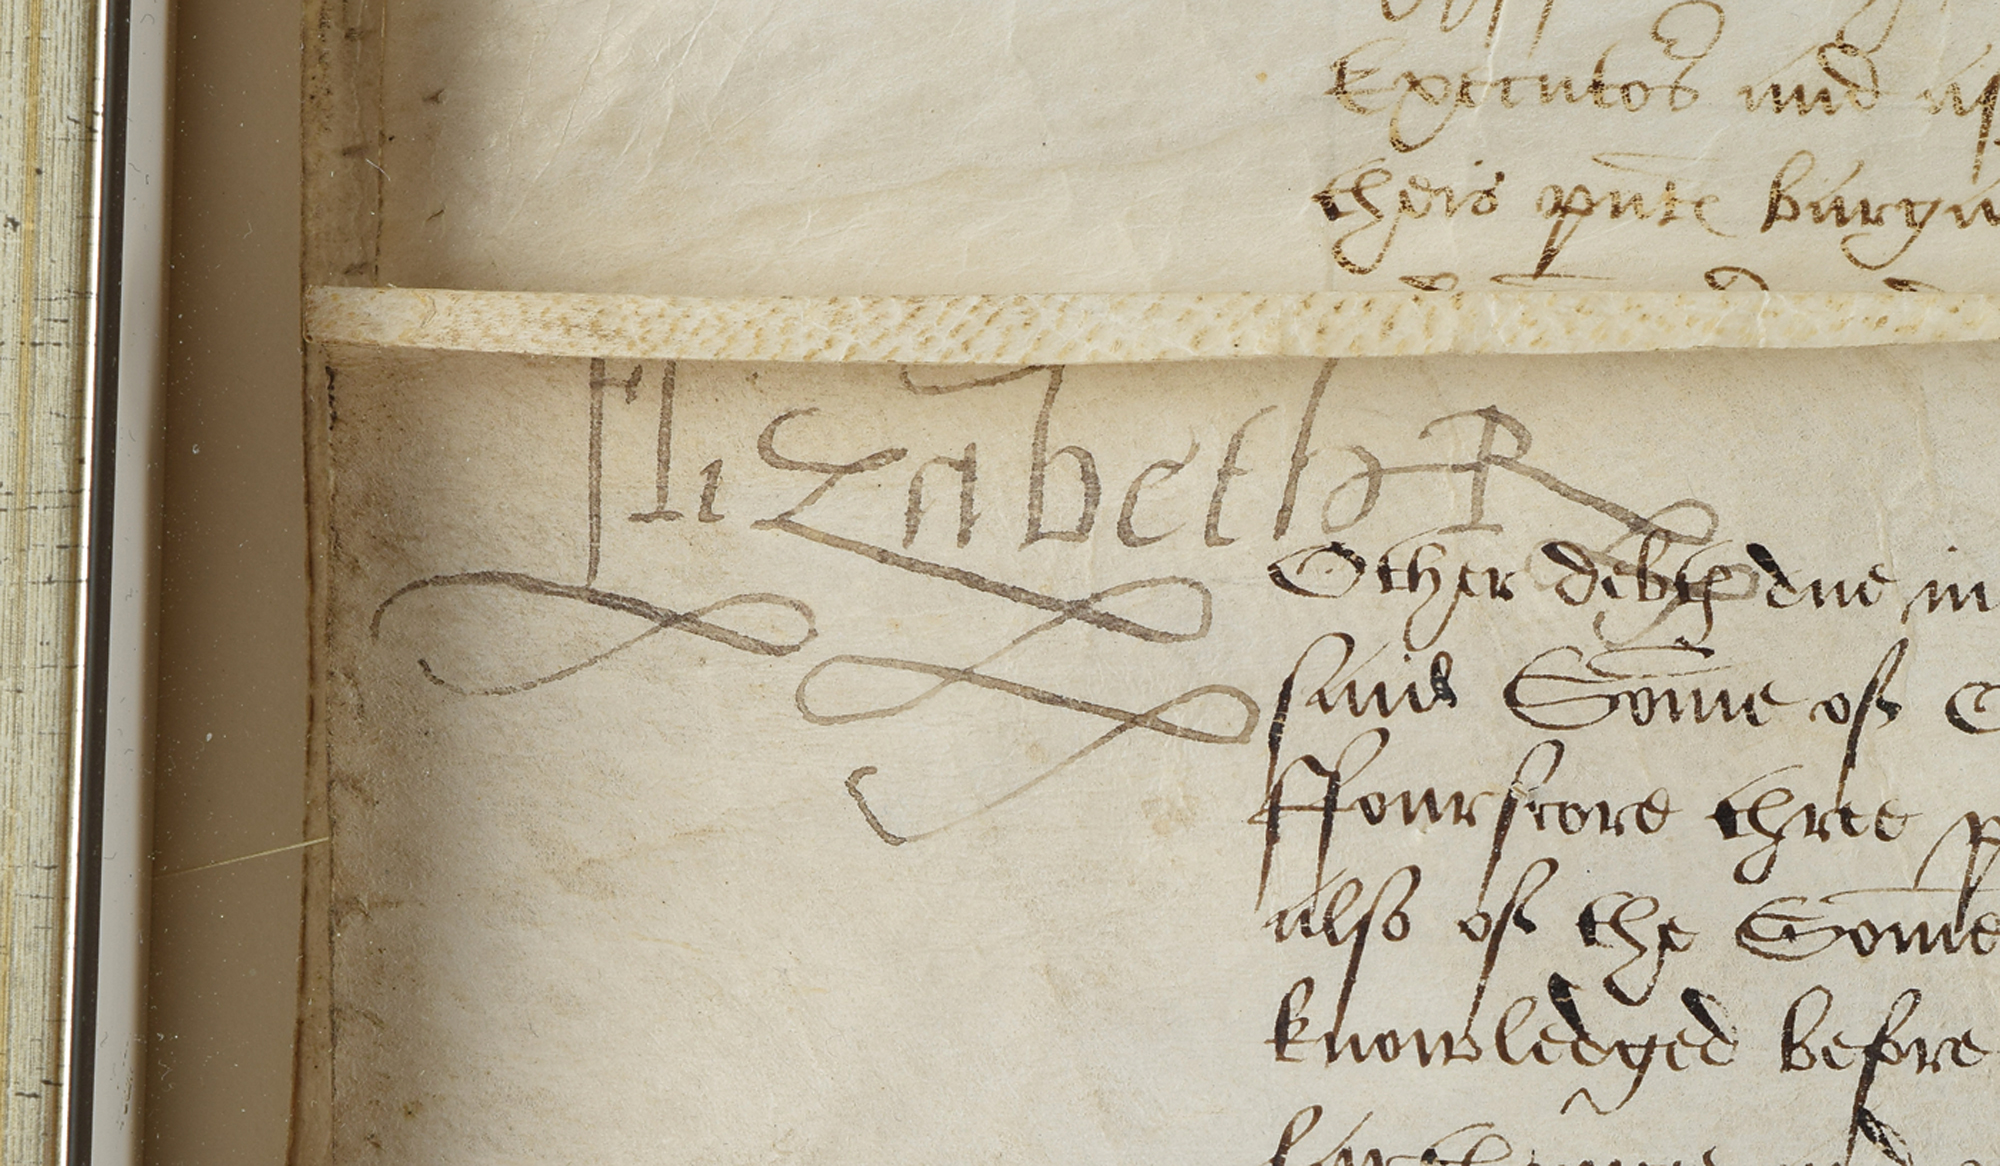 Executors and ass
theis pnte bargai
Elizabeth R
Other debtes due in
said Some of
ffourscore three p
also of the Some
knowledged before